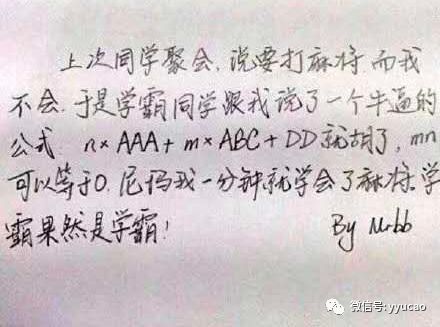 上次同学聚会,说要打麻将,而我
不会.于是学霸同学跟我说了一个牛逼的
公式 n×AAA+m×ABC+DD就胡了,mn
可以等于0.尼玛我一分钟就学会了麻将.学
霸果然是学霸!
By Mrbb
微信号: yyucao